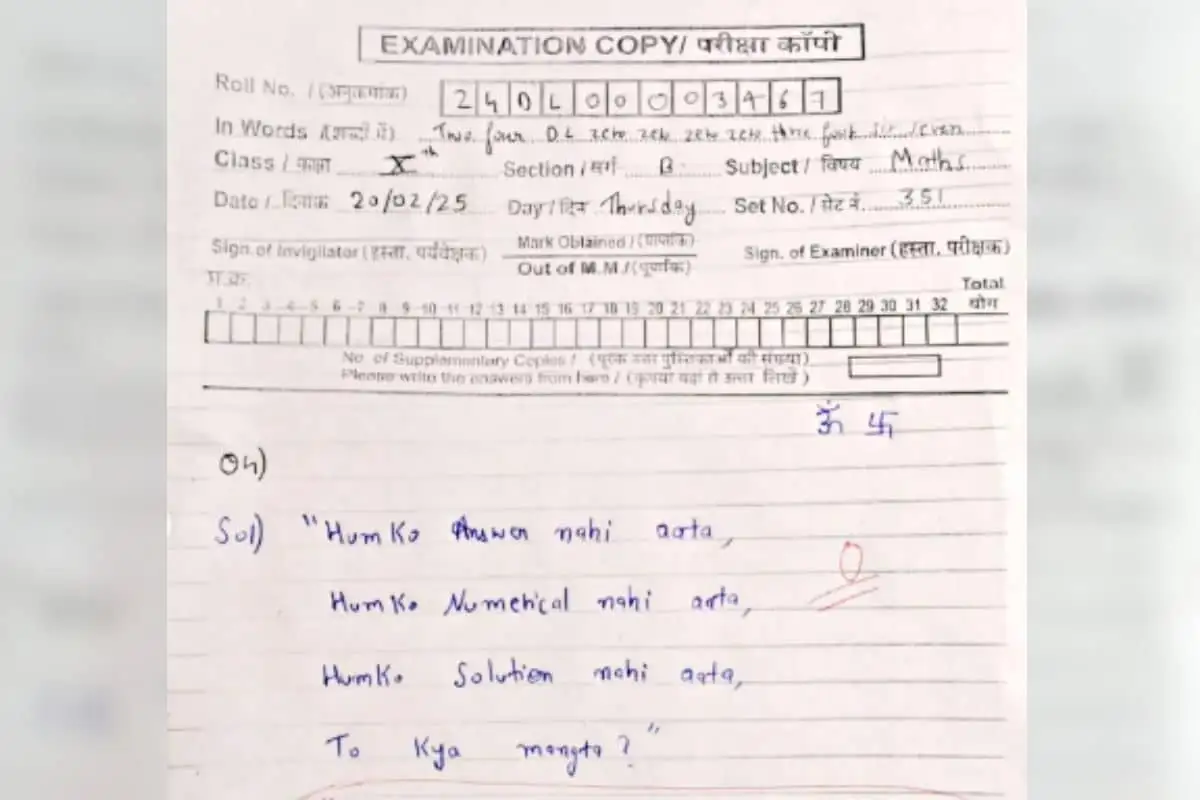 EXAMINATION COPY/ परीक्षा कॉपी
Roll No. / (अनुक्रमांक) 24DL00003467
In Words /(शब्दों में) Two four DL zero zero zero zero three four six seven
Class / कक्षा X th Section / वर्ग B Subject / विषय Maths
Date / दिनांक 20/02/25 Day / दिन Thursday Set No. / सेट नं. 351
Sign. of Invigilator (हस्ता. पर्यवेक्षक) Mark Oblained / (प्राप्तांक) Sign. of Examiner (हस्ता. परीक्षक)
Out of M.M / (पूर्णांक)
प्र.क्र. Total
1 2 3 4 5 6 7 8 9 10 11 12 13 14 15 16 17 18 19 20 21 22 23 24 25 26 27 28 29 30 31 32 योग
No. of Supplementary Copies / (पूरक उत्तर पुस्तिकाओं की संख्या)
Please write the answers from here / (कृपया यहां से उत्तर लिखें)
ॐ 卐
04)
Sol) "Humko Answer nahi aata,
0
Humko Numerical nahi aata,
Humko Solution nahi aata,
To Kya mangta?"